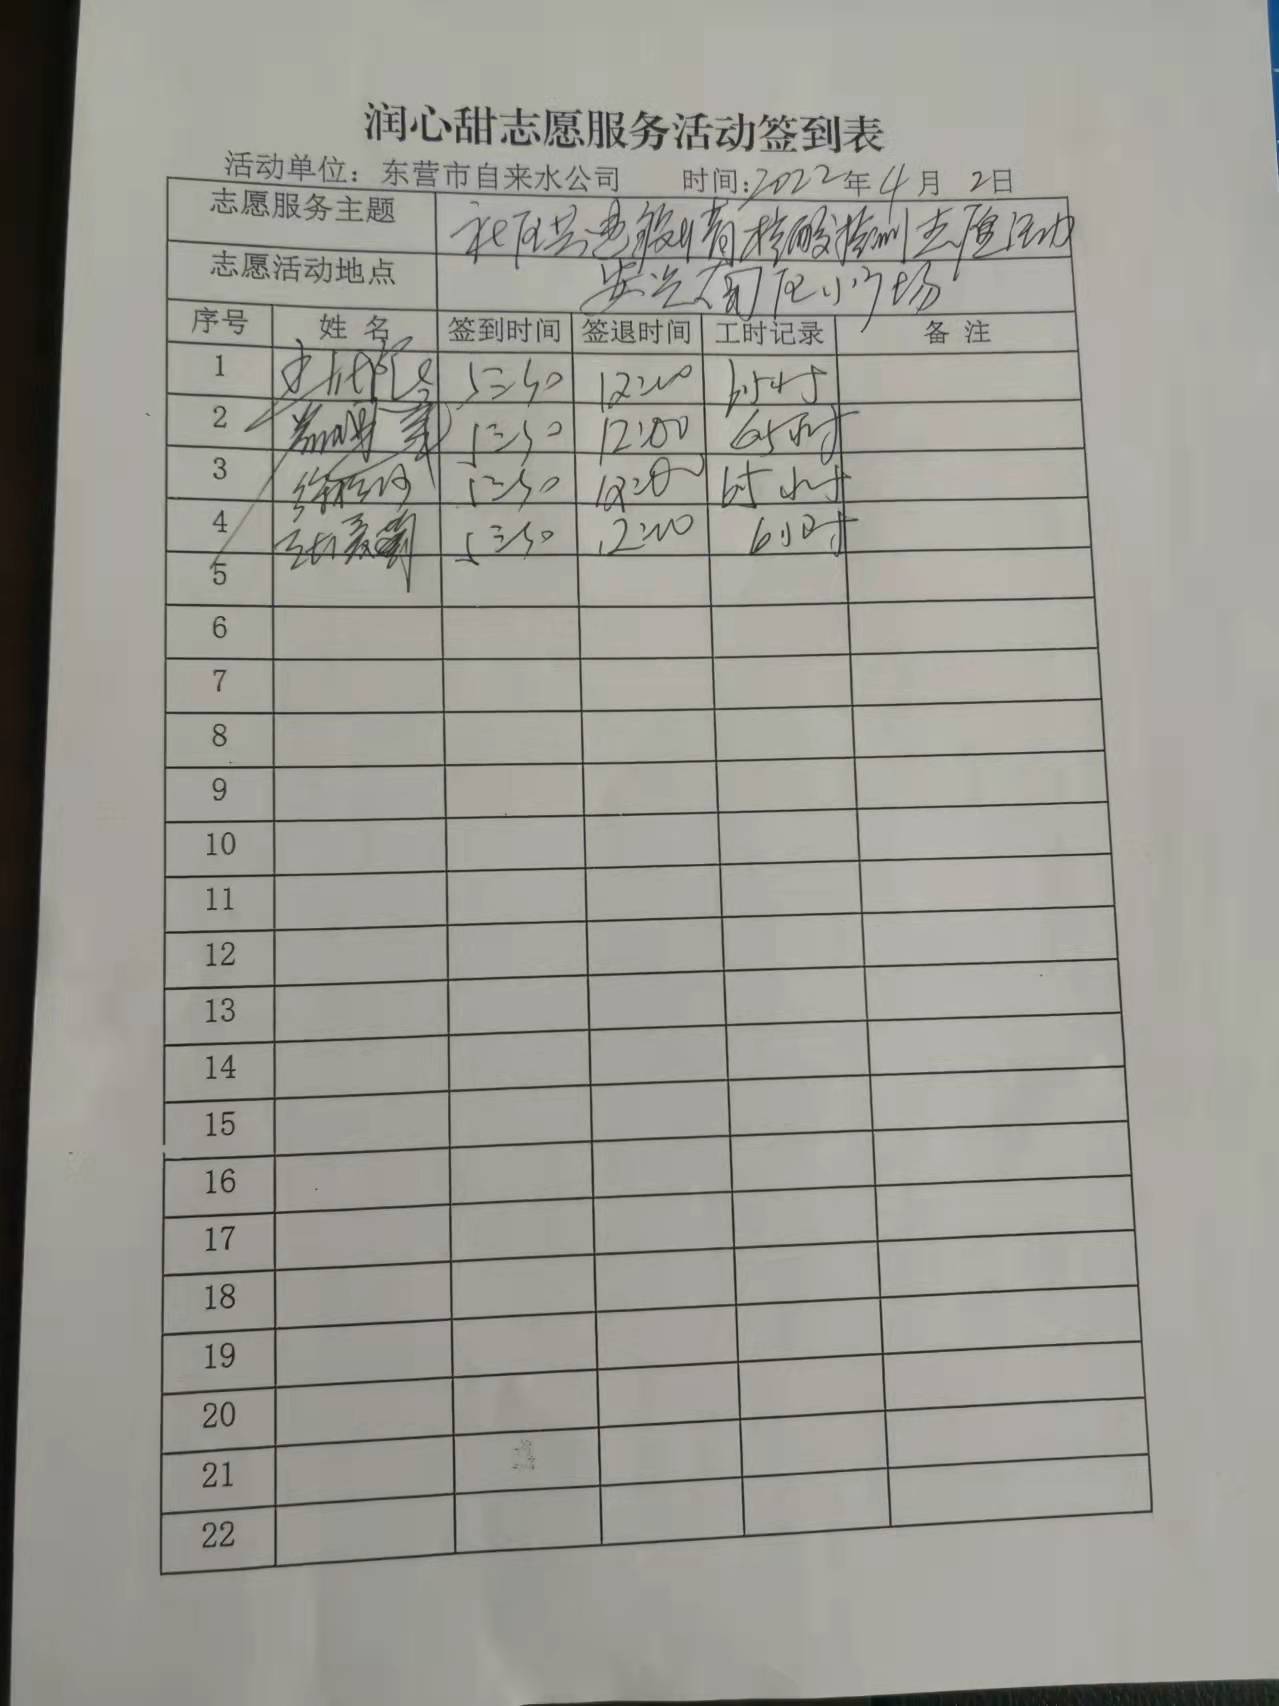 润心甜志愿服务活动签到表
活动单位：东营市自来水公司 时间：2022年4月2日
志愿服务主题 社区共建 疫情核酸检测志愿活动
志愿活动地点 安兴南区小广场
序号 姓名 签到时间 签退时间 工时记录 备注
1 5:50 12:00
2 5:50 12:00 6.5小时
3 5:50 12:00 6.5小时
4 5:50 12:00 6小时
5
6
7
8
9
10
11
12
13
14
15
16
17
18
19
20
21
22